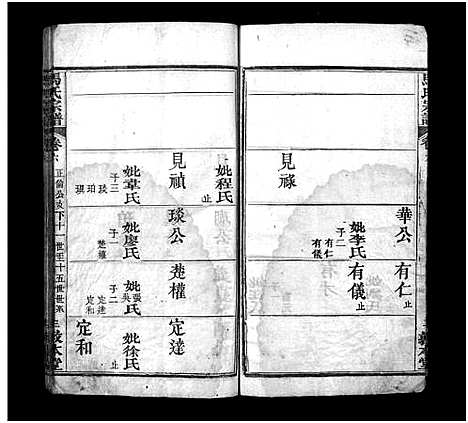 馬氏宗譜
卷六
見祿
華公
妣李氏
子二
有仁
有儀
有仁
止
有儀
止
妣程氏
止
見禎
妣韋氏
子三
琰
珀
琰公
妣廖氏
子一
楚權
楚權
妣張氏
吳
子二
定達
定和
定達
止
妣徐氏
定和
馬氏宗譜
卷六
下十一世至十五世世系
三
敦本堂